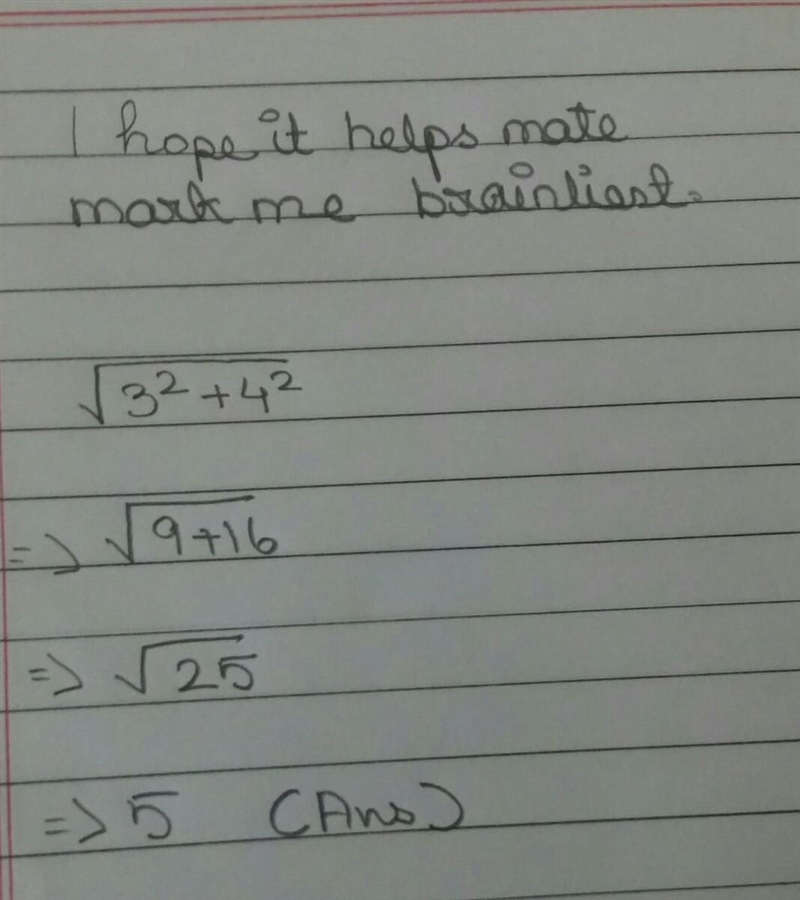 I hope it helps mate
mark me brainliest.
√3²+4²
=> √9+16
=> √25
=> 5 (Ans)